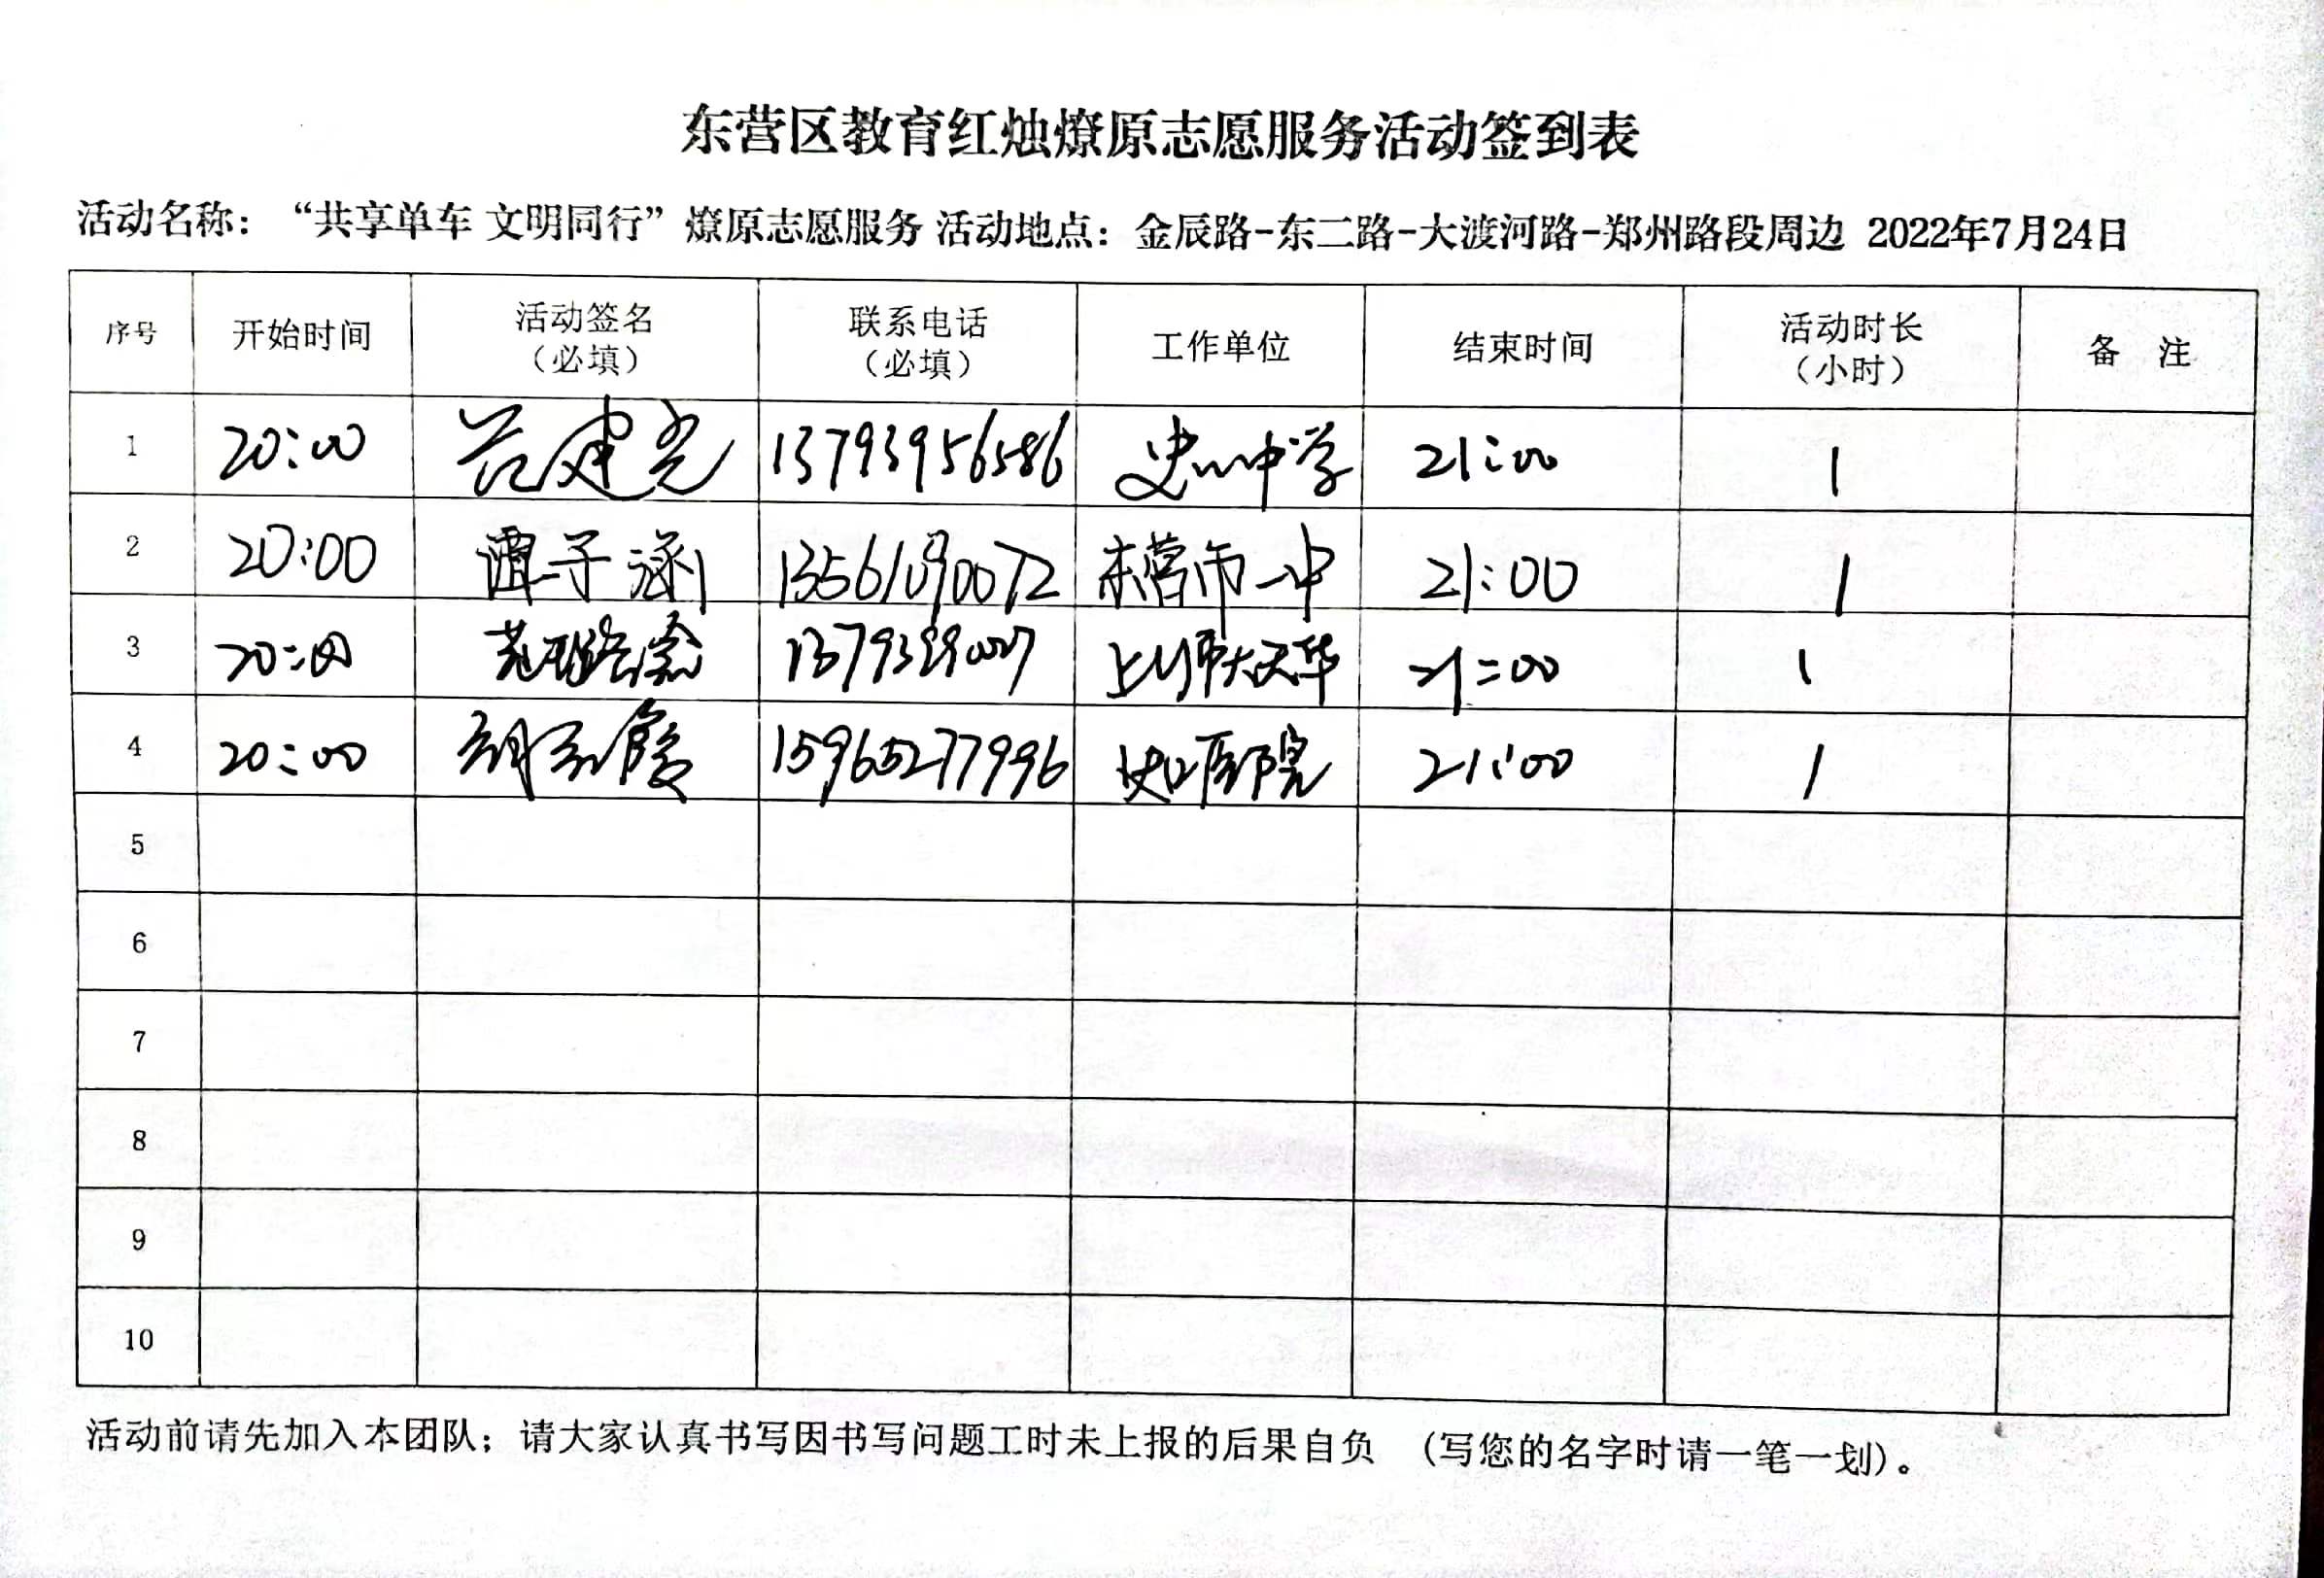 东营区教育红烛燎原志愿服务活动签到表
活动名称：“共享单车 文明同行”燎原志愿服务 活动地点：金辰路-东二路-大渡河路-郑州路段周边 2022年7月24日
序号 开始时间 活动签名（必填） 联系电话（必填） 工作单位 结束时间 活动时长（小时） 备 注
1 20:00 建光 13793956586 史口中学 21:00 1
2 20:00 谭子涵 13561090072 东营市一中 21:00 1
3 20:00 上师大天华 21:00 1
4 20:00 胡 霞 15965277996 史口医院 21:00 1
5
6
7
8
9
10
活动前请先加入本团队；请大家认真书写因书写问题工时未上报的后果自负 （写您的名字时请一笔一划）。